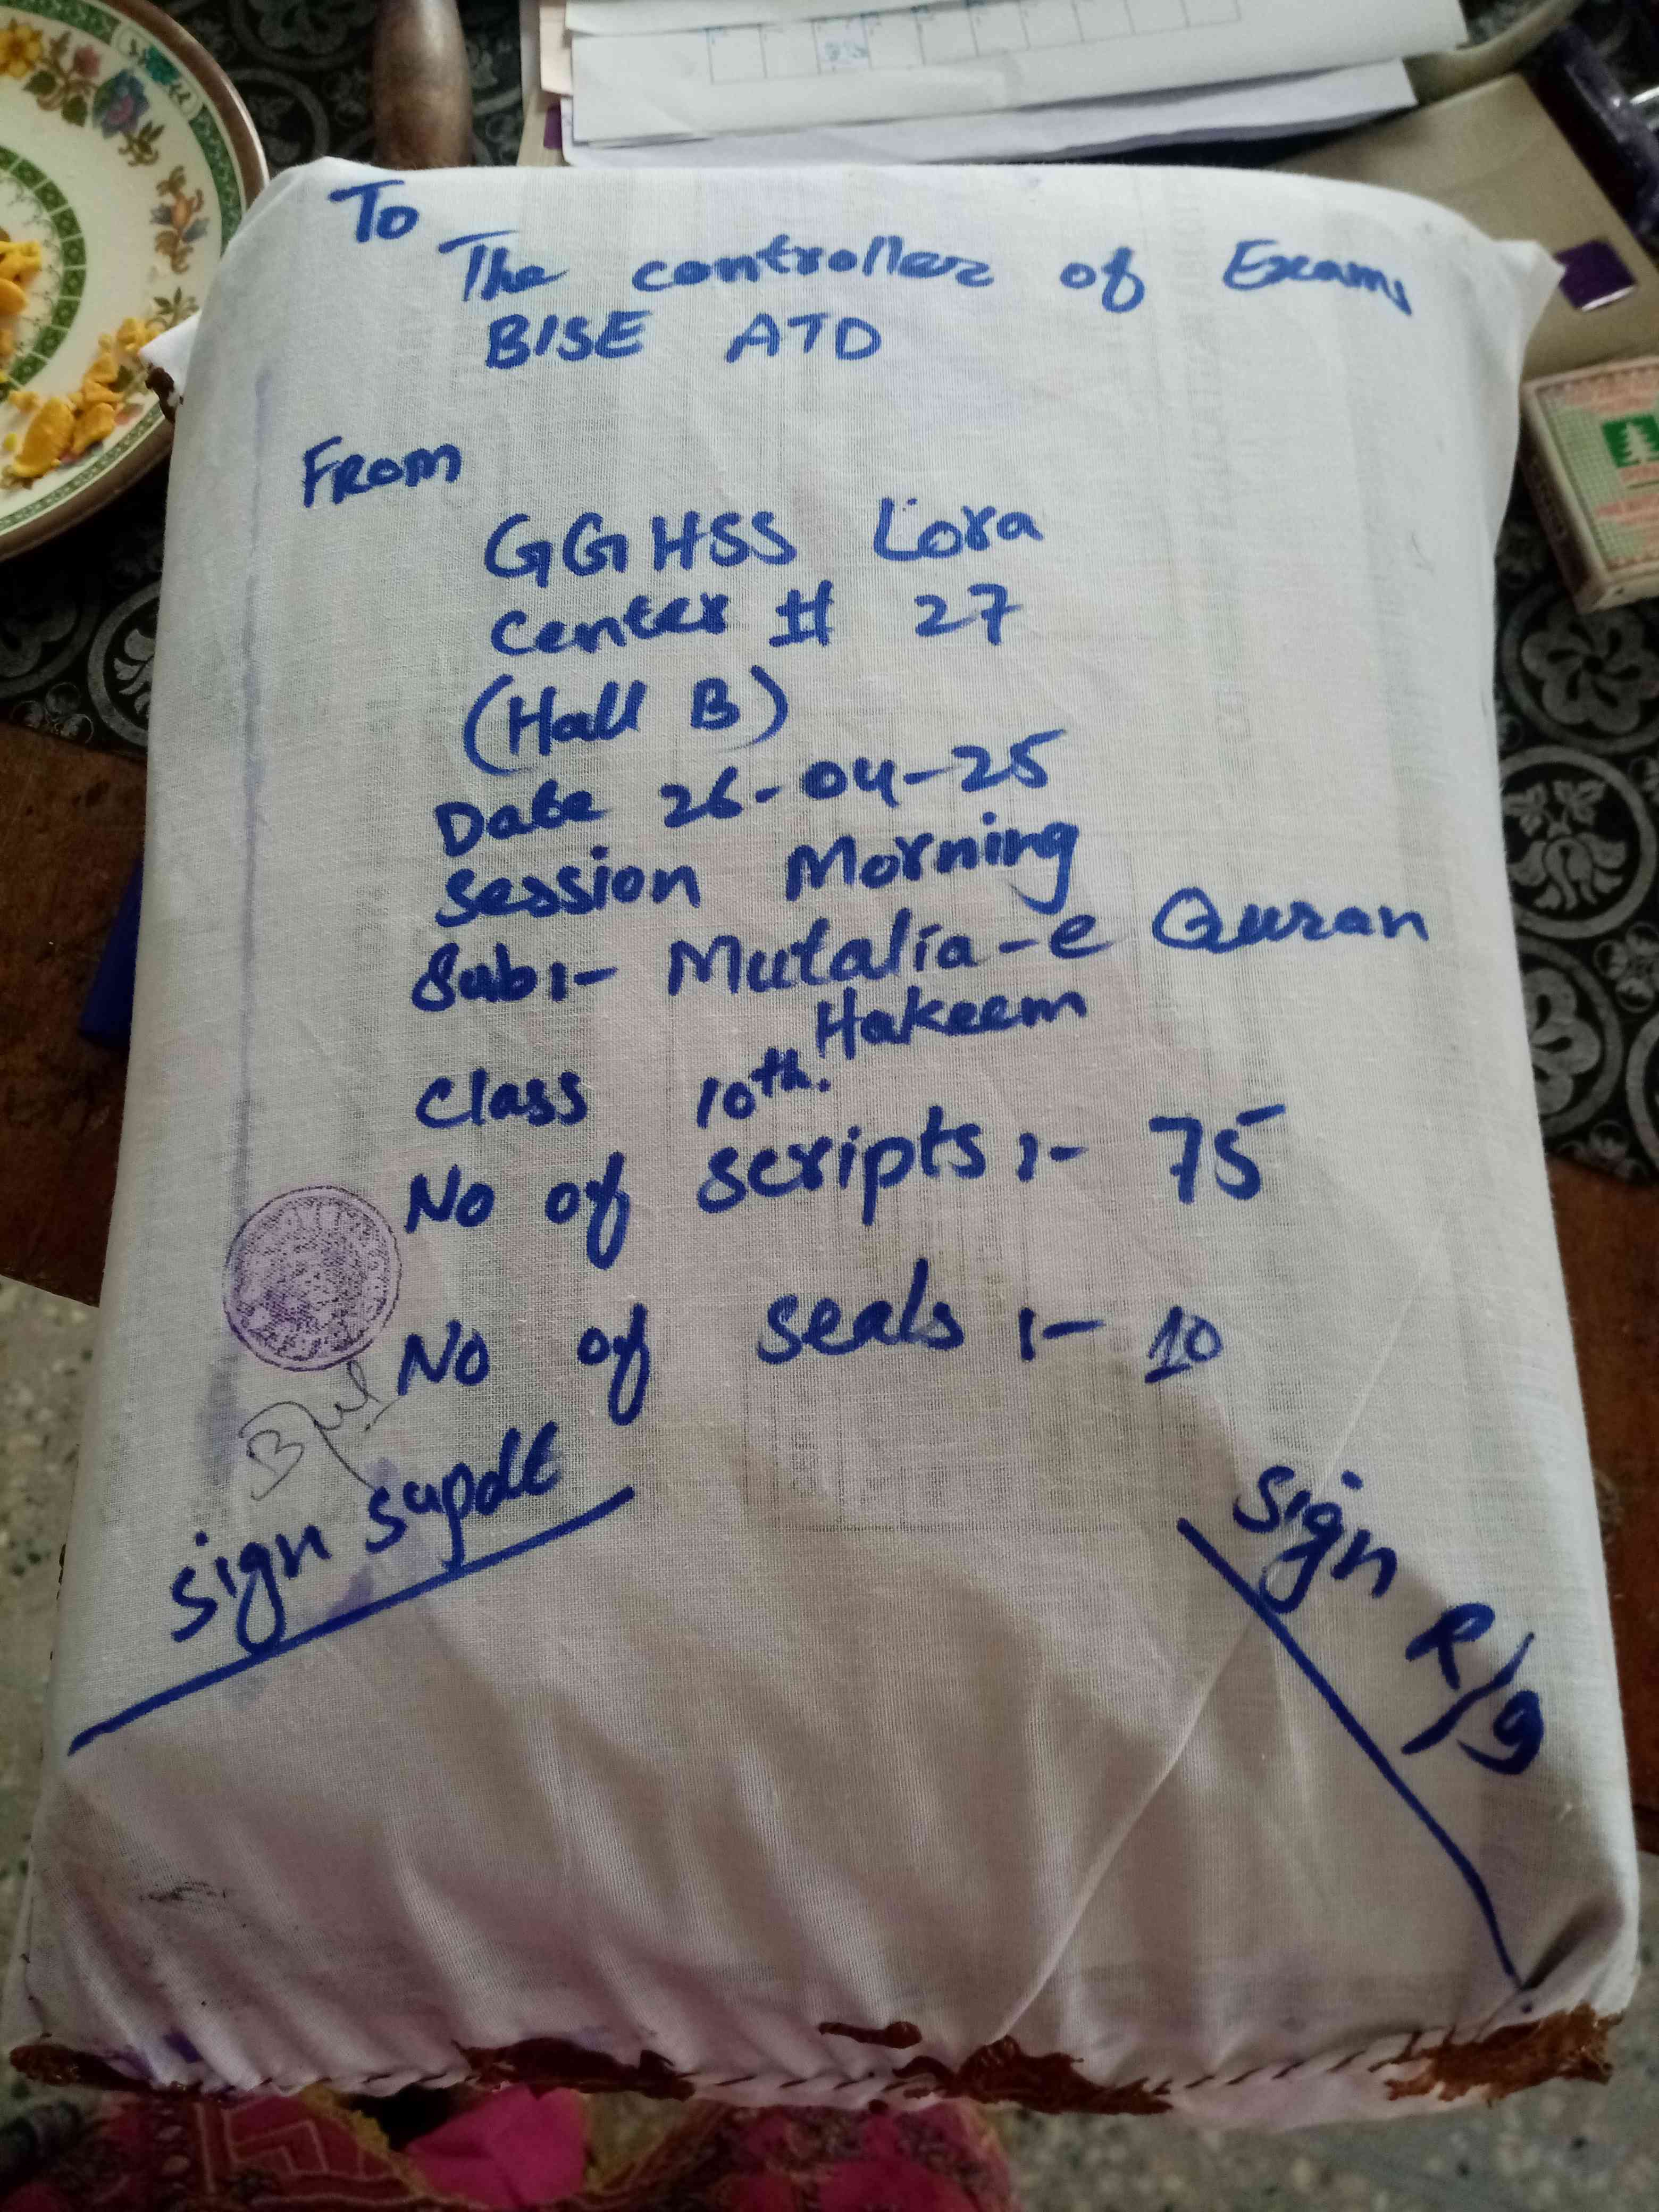 To
The controller of Exams
BISE ATD
From
GGHSS Lora
Center # 27
(Hall B)
Date 26-04-25
Session Morning
Sub:- Mutalia-e Quran
Hakeem
Class 10th.
No of scripts :- 75
No of seals :- 10
Sign Supdt
Sign R/I